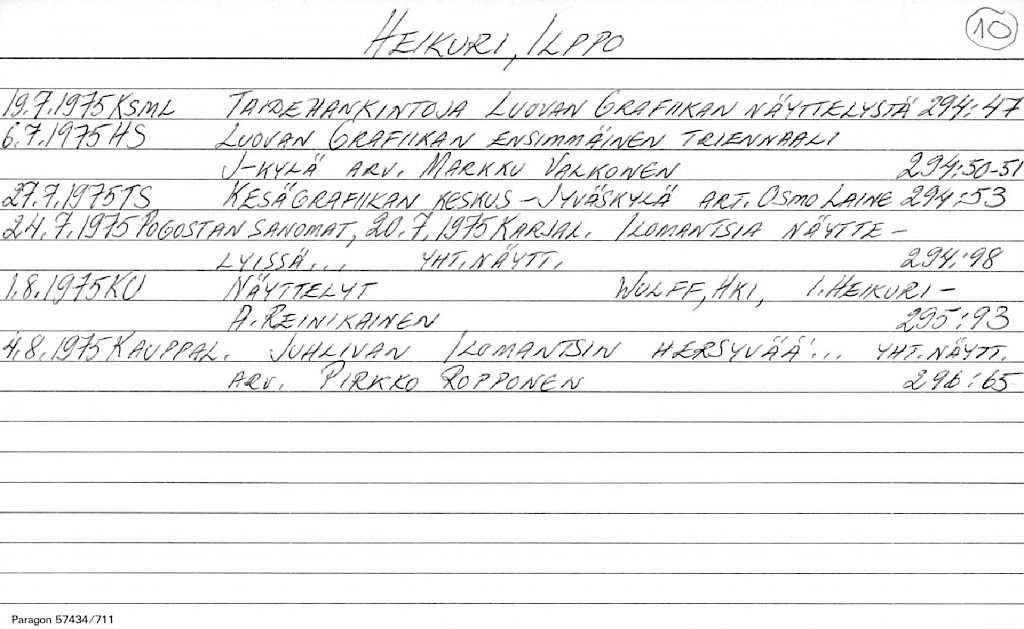 HEIKURI, ILPPO
10
19.7.1975 KSML TAIDEHANKINTOJA LUOVAN GRAFIIKAN NÄYTTELYSTÄ 294:47
6.7.1975 HS LUOVAN GRAFIIKAN ENSIMMÄINEN TRIENNAALI
J-KYLÄ ARV. MARKKU VALKONEN 294:50-51
27.7.1975 TS KESÄGRAFIIKAN KESKUS - JYVÄSKYLÄ ART. OSMO LAINE 294:53
24.7.1975 POGOSTAN SANOMAT, 20.7.1975 KARJAL. ILOMANTSIA NÄYTTE-
LYISSÄ... YHT.NÄYTT. 294:98
1.8.1975 KU NÄYTTELYT WULFF, HKI, I.HEIKURI-
A.REINIKAINEN 295:93
4.8.1975 KAUPPAL. JUHLIVAN ILOMANTSIN HERSYVÄÄ... YHT.NÄYTT.
ARV. PIRKKO ROPPONEN 296:65
Paragon 57434/711